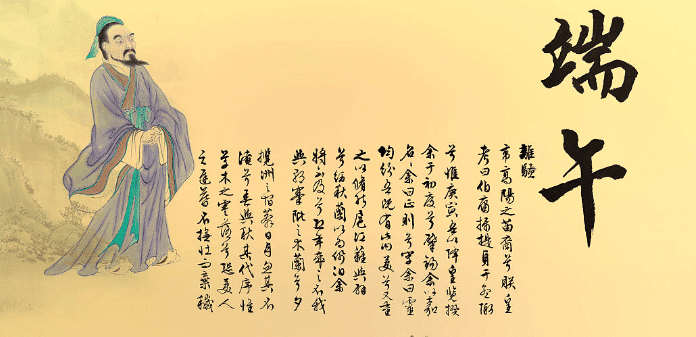 端午
離騷
帝高陽之苗裔兮朕皇
考曰伯庸攝提貞于孟陬
兮惟庚寅吾以降皇覽揆
余于初度兮肇錫余以嘉
名〻余曰正則兮字余曰靈
均紛吾既有此內美兮又重
之以脩能扈江離與
兮紉秋蘭以為佩汩余
將不及兮恐年歲之不我
與朝搴阰之木蘭兮夕
攬洲之宿莽日月忽其不
淹兮春與秋其代序惟
草木之零落兮恐美人
之遲暮不撫壯而棄穢